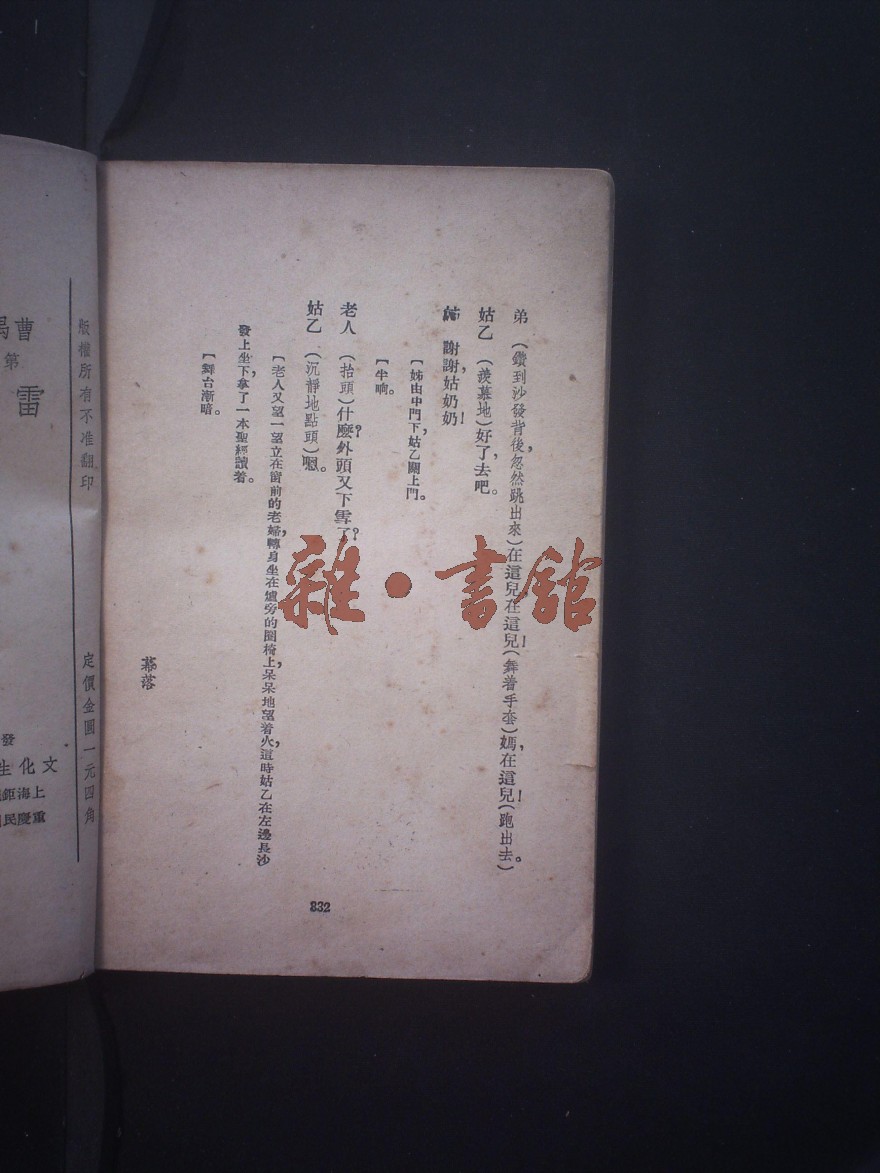 弟 (鑽到沙發背後,忽然跳出來)在這兒!在這兒!(舞着手套)媽,在這兒!(跑出去。)
姑乙 (羨慕地)好了,去吧。
姊 謝謝姑奶奶!
【姊由中門下,姑乙關上門。
【半晌。
老人 (抬頭)什麼?外頭又下雪了?
姑乙 (沉靜地點頭)嗯。
【老人又望一望立在窗前的老婦,轉身坐在爐旁的圈椅上,呆呆地望着火,這時姑乙在左邊長沙
發上坐下,拿了一本聖經讀着。
【舞台漸暗。
幕落
832
雜·書館
版權所有不准翻印
定價金圓一元四角
曹禺
第
雷
發
文化生
上海鉅
重慶民